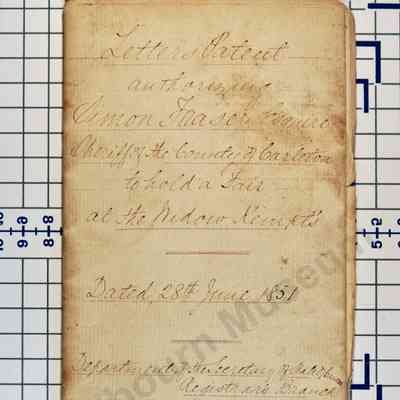 Letters Patent
authorizing
Simon Fraser Esquire
Sheriff of the County of Carleton
to hold a Fair
at the Widow Kempt's
Dated, 28th June 1851
Department of the Secretary of State of
Registrar's Branch